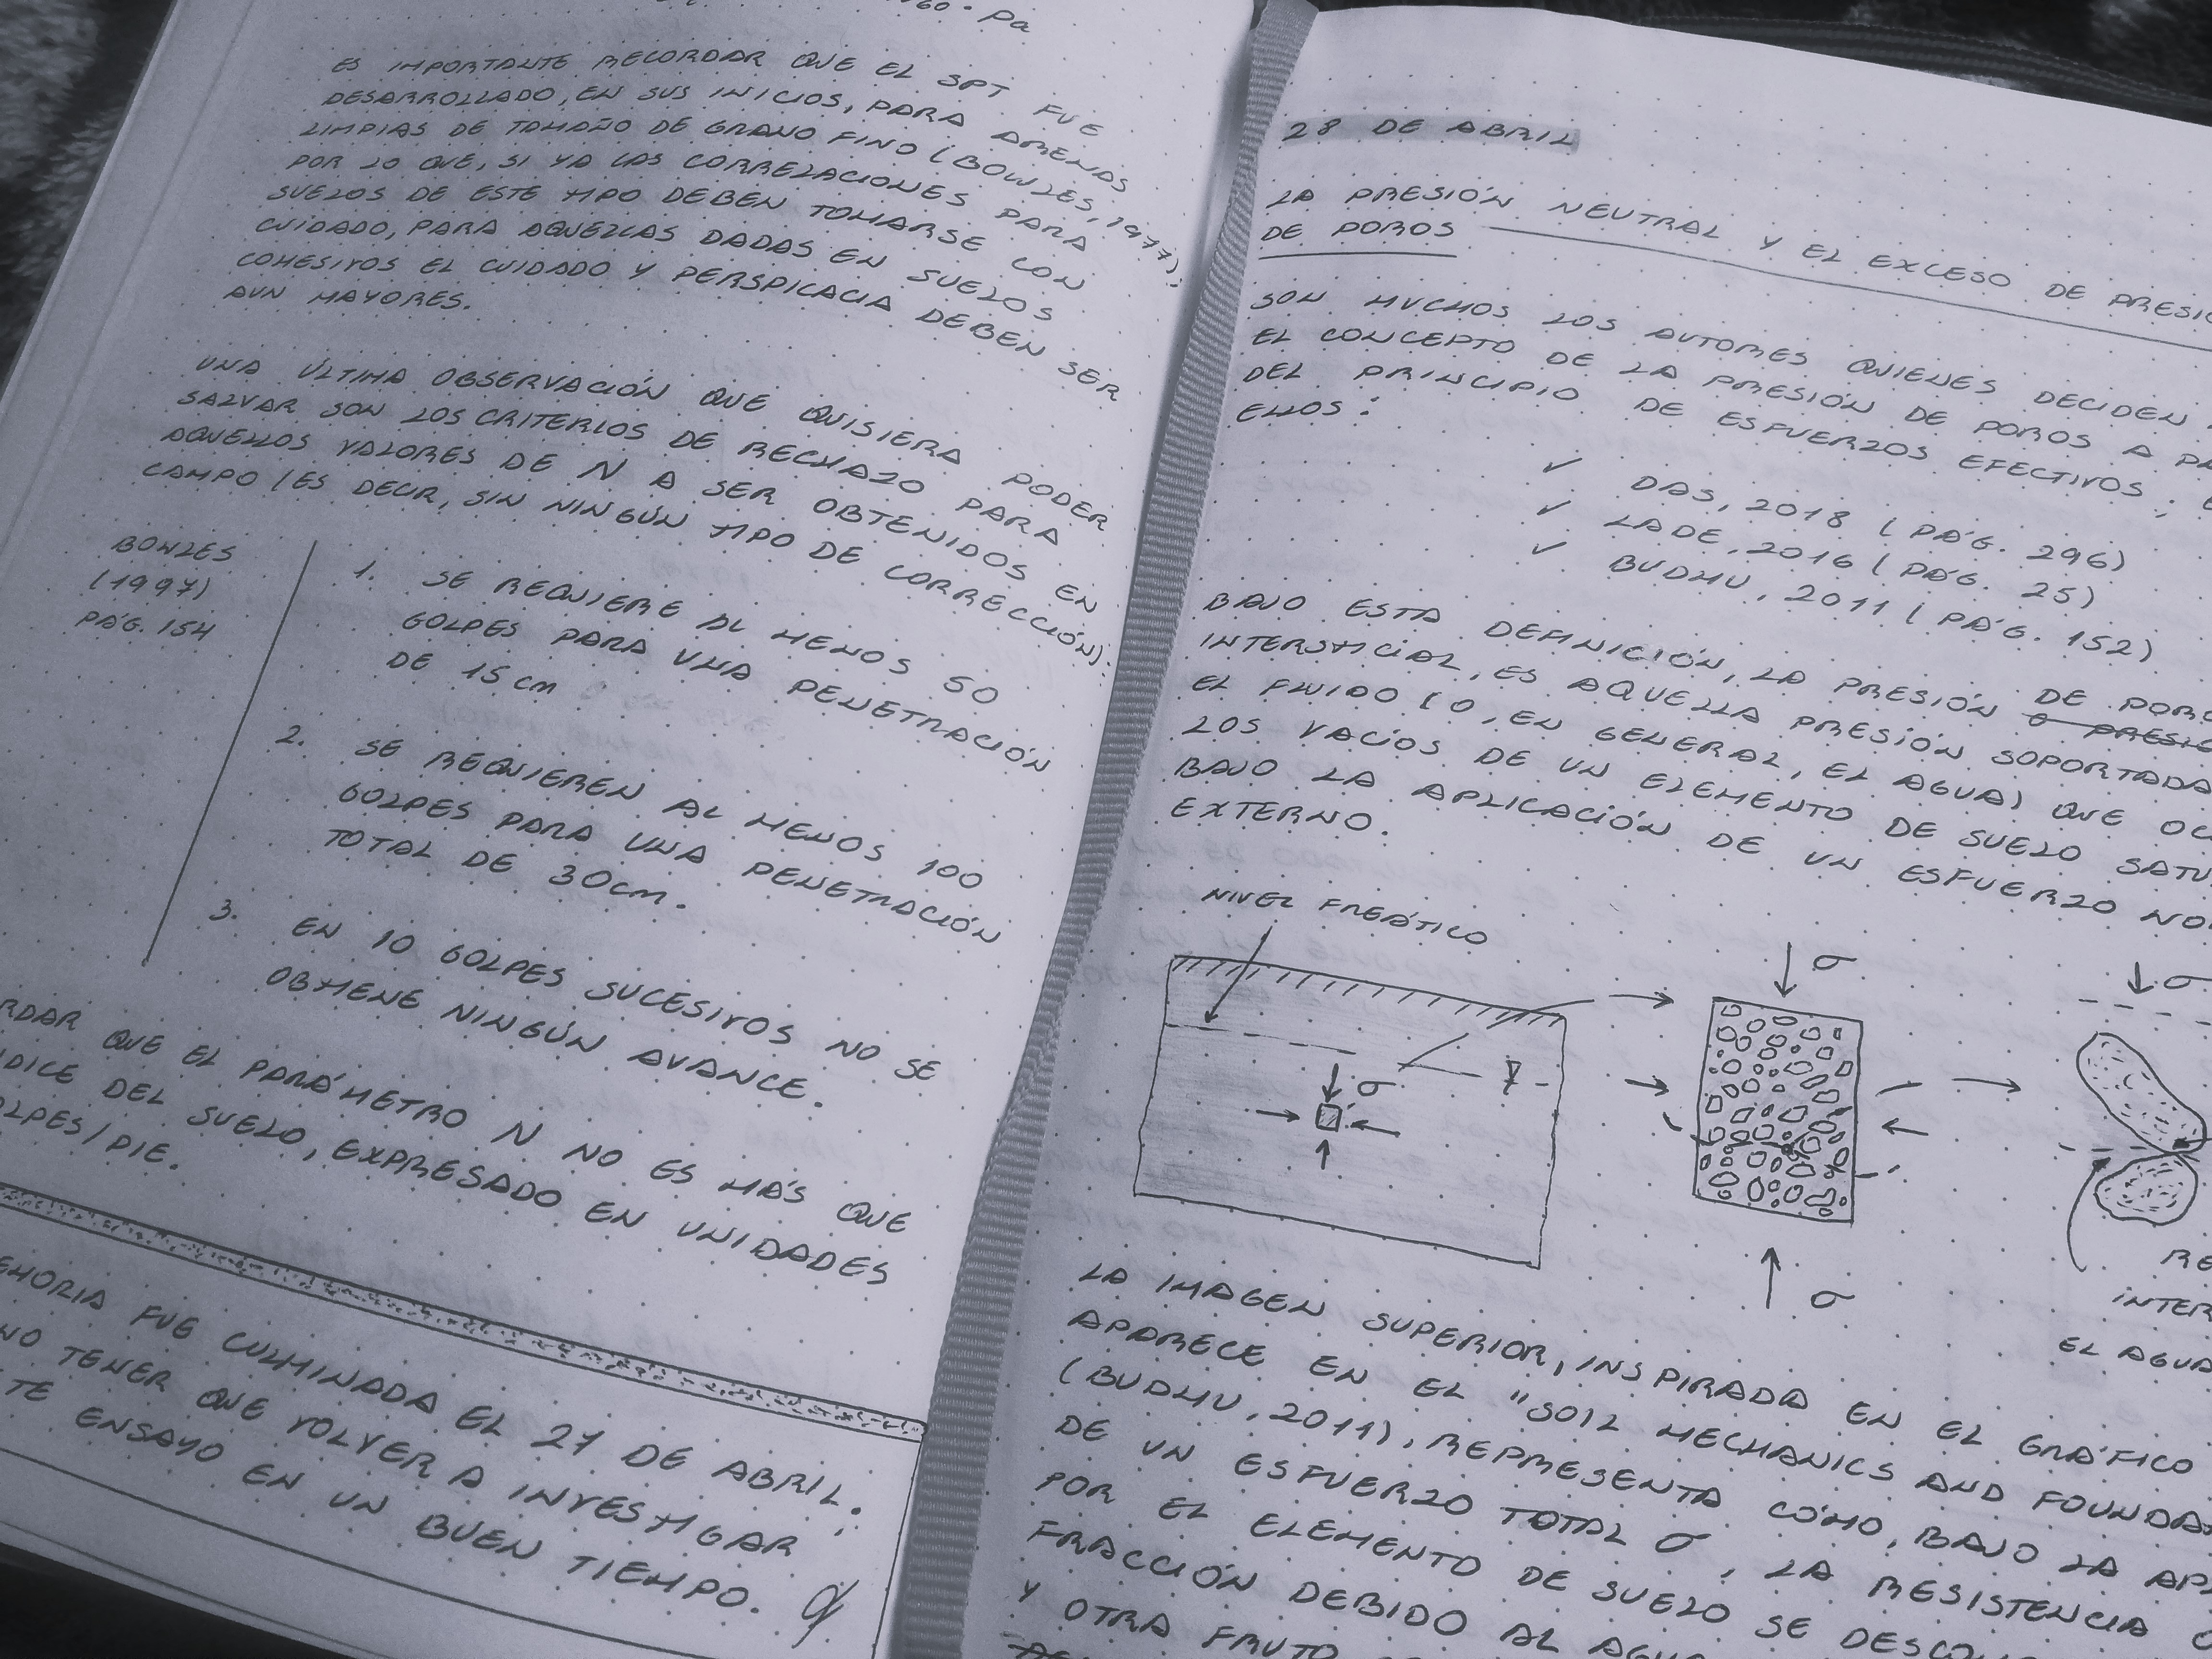 ES IMPORTANTE RECORDAR QUE EL SPT FUE
DESARROLLADO, EN SUS INICIOS, PARA ARENAS
LIMPIAS DE TAMAÑO DE GRANO FINO (BOWLES, 1977);
POR LO QUE, SI YA LAS CORRELACIONES PARA
SUELOS DE ESTE TIPO DEBEN TOMARSE CON
CUIDADO, PARA AQUELLAS DADAS EN SUELOS
COHESIVOS EL CUIDADO Y PERSPICACIA DEBEN SER
AUN MAYORES.
UNA ÚLTIMA OBSERVACIÓN QUE QUISIERA PODER
SALVAR SON LOS CRITERIOS DE RECHAZO PARA
AQUELLOS VALORES DE N A SER OBTENIDOS EN
CAMPO (ES DECIR, SIN NINGÚN TIPO DE CORRECCIÓN):
BOWLES
(1997)
PÁG. 154
1. SE REQUIERE AL MENOS 50
GOLPES PARA UNA PENETRACIÓN
DE 15 cm
2. SE REQUIEREN AL MENOS 100
GOLPES PARA UNA PENETRACIÓN
TOTAL DE 30cm.
3. EN 10 GOLPES SUCESIVOS NO SE
OBTIENE NINGÚN AVANCE.
QUE EL PARÁMETRO N NO ES MÁS QUE
DEL SUELO, EXPRESADO EN UNIDADES
/PIE.
FUE CULMINADA EL 27 DE ABRIL.
NO TENER QUE VOLVER A INVESTIGAR
ENSAYO EN UN BUEN TIEMPO.
28 DE ABRIL
LA PRESIÓN NEUTRAL Y EL EXCESO DE
DE POROS
SON MUCHOS LOS AUTORES QUIENES DECIDEN
EL CONCEPTO DE LA PRESIÓN DE POROS A
DEL PRINCIPIO DE ESFUERZOS EFECTIVOS;
ELLOS:
✓ DAS, 2018 (PÁG. 296)
✓ LADE, 2016 (PÁG. 25)
✓ BUDHU, 2011 (PÁG. 152)
BAJO ESTA DEFINICIÓN, LA PRESIÓN DE
INTERSTICIAL, ES AQUELLA PRESIÓN SOPORTADA
EL FLUIDO (O, EN GENERAL, EL AGUA) QUE
LOS VACÍOS DE UN ELEMENTO DE SUELO
BAJO LA APLICACIÓN DE UN ESFUERZO
EXTERNO.
NIVEL FREÁTICO
σ
σ
σ
σ
EL AGUA
LA IMAGEN SUPERIOR, INSPIRADA EN EL GRÁFICO
APARECE EN EL "SOIL MECHANICS AND
(BUDHU, 2011), REPRESENTA CÓMO, BAJO LA
DE UN ESFUERZO TOTAL σ, LA RESISTENCIA
POR EL ELEMENTO DE SUELO SE
FRACCIÓN DEBIDO AL
Y OTRA FRUTO